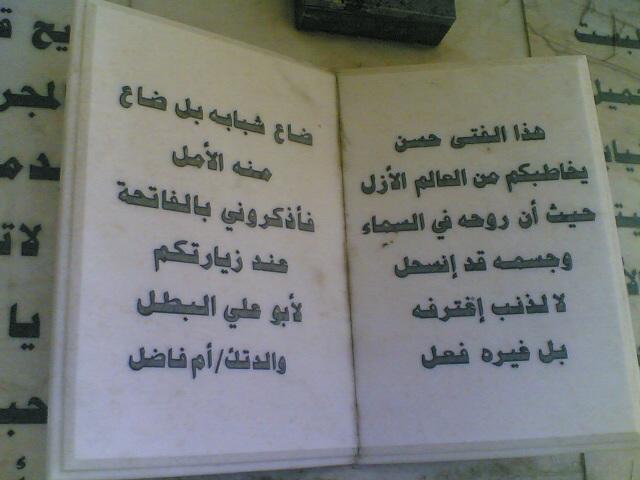 هذا الفتى حسن
يخاطبكم من العالم الأزل
حيث أن روحه في السماء
وجسمه قد إنسحل
لا لذنب إغترفه
بل غيره فعل
ضاع شبابه بل ضاع
منه الأمل
فأذكروني بالفاتحة
عند زيارتكم
لأبو علي البطل
والدتك/أم فاضل
يا